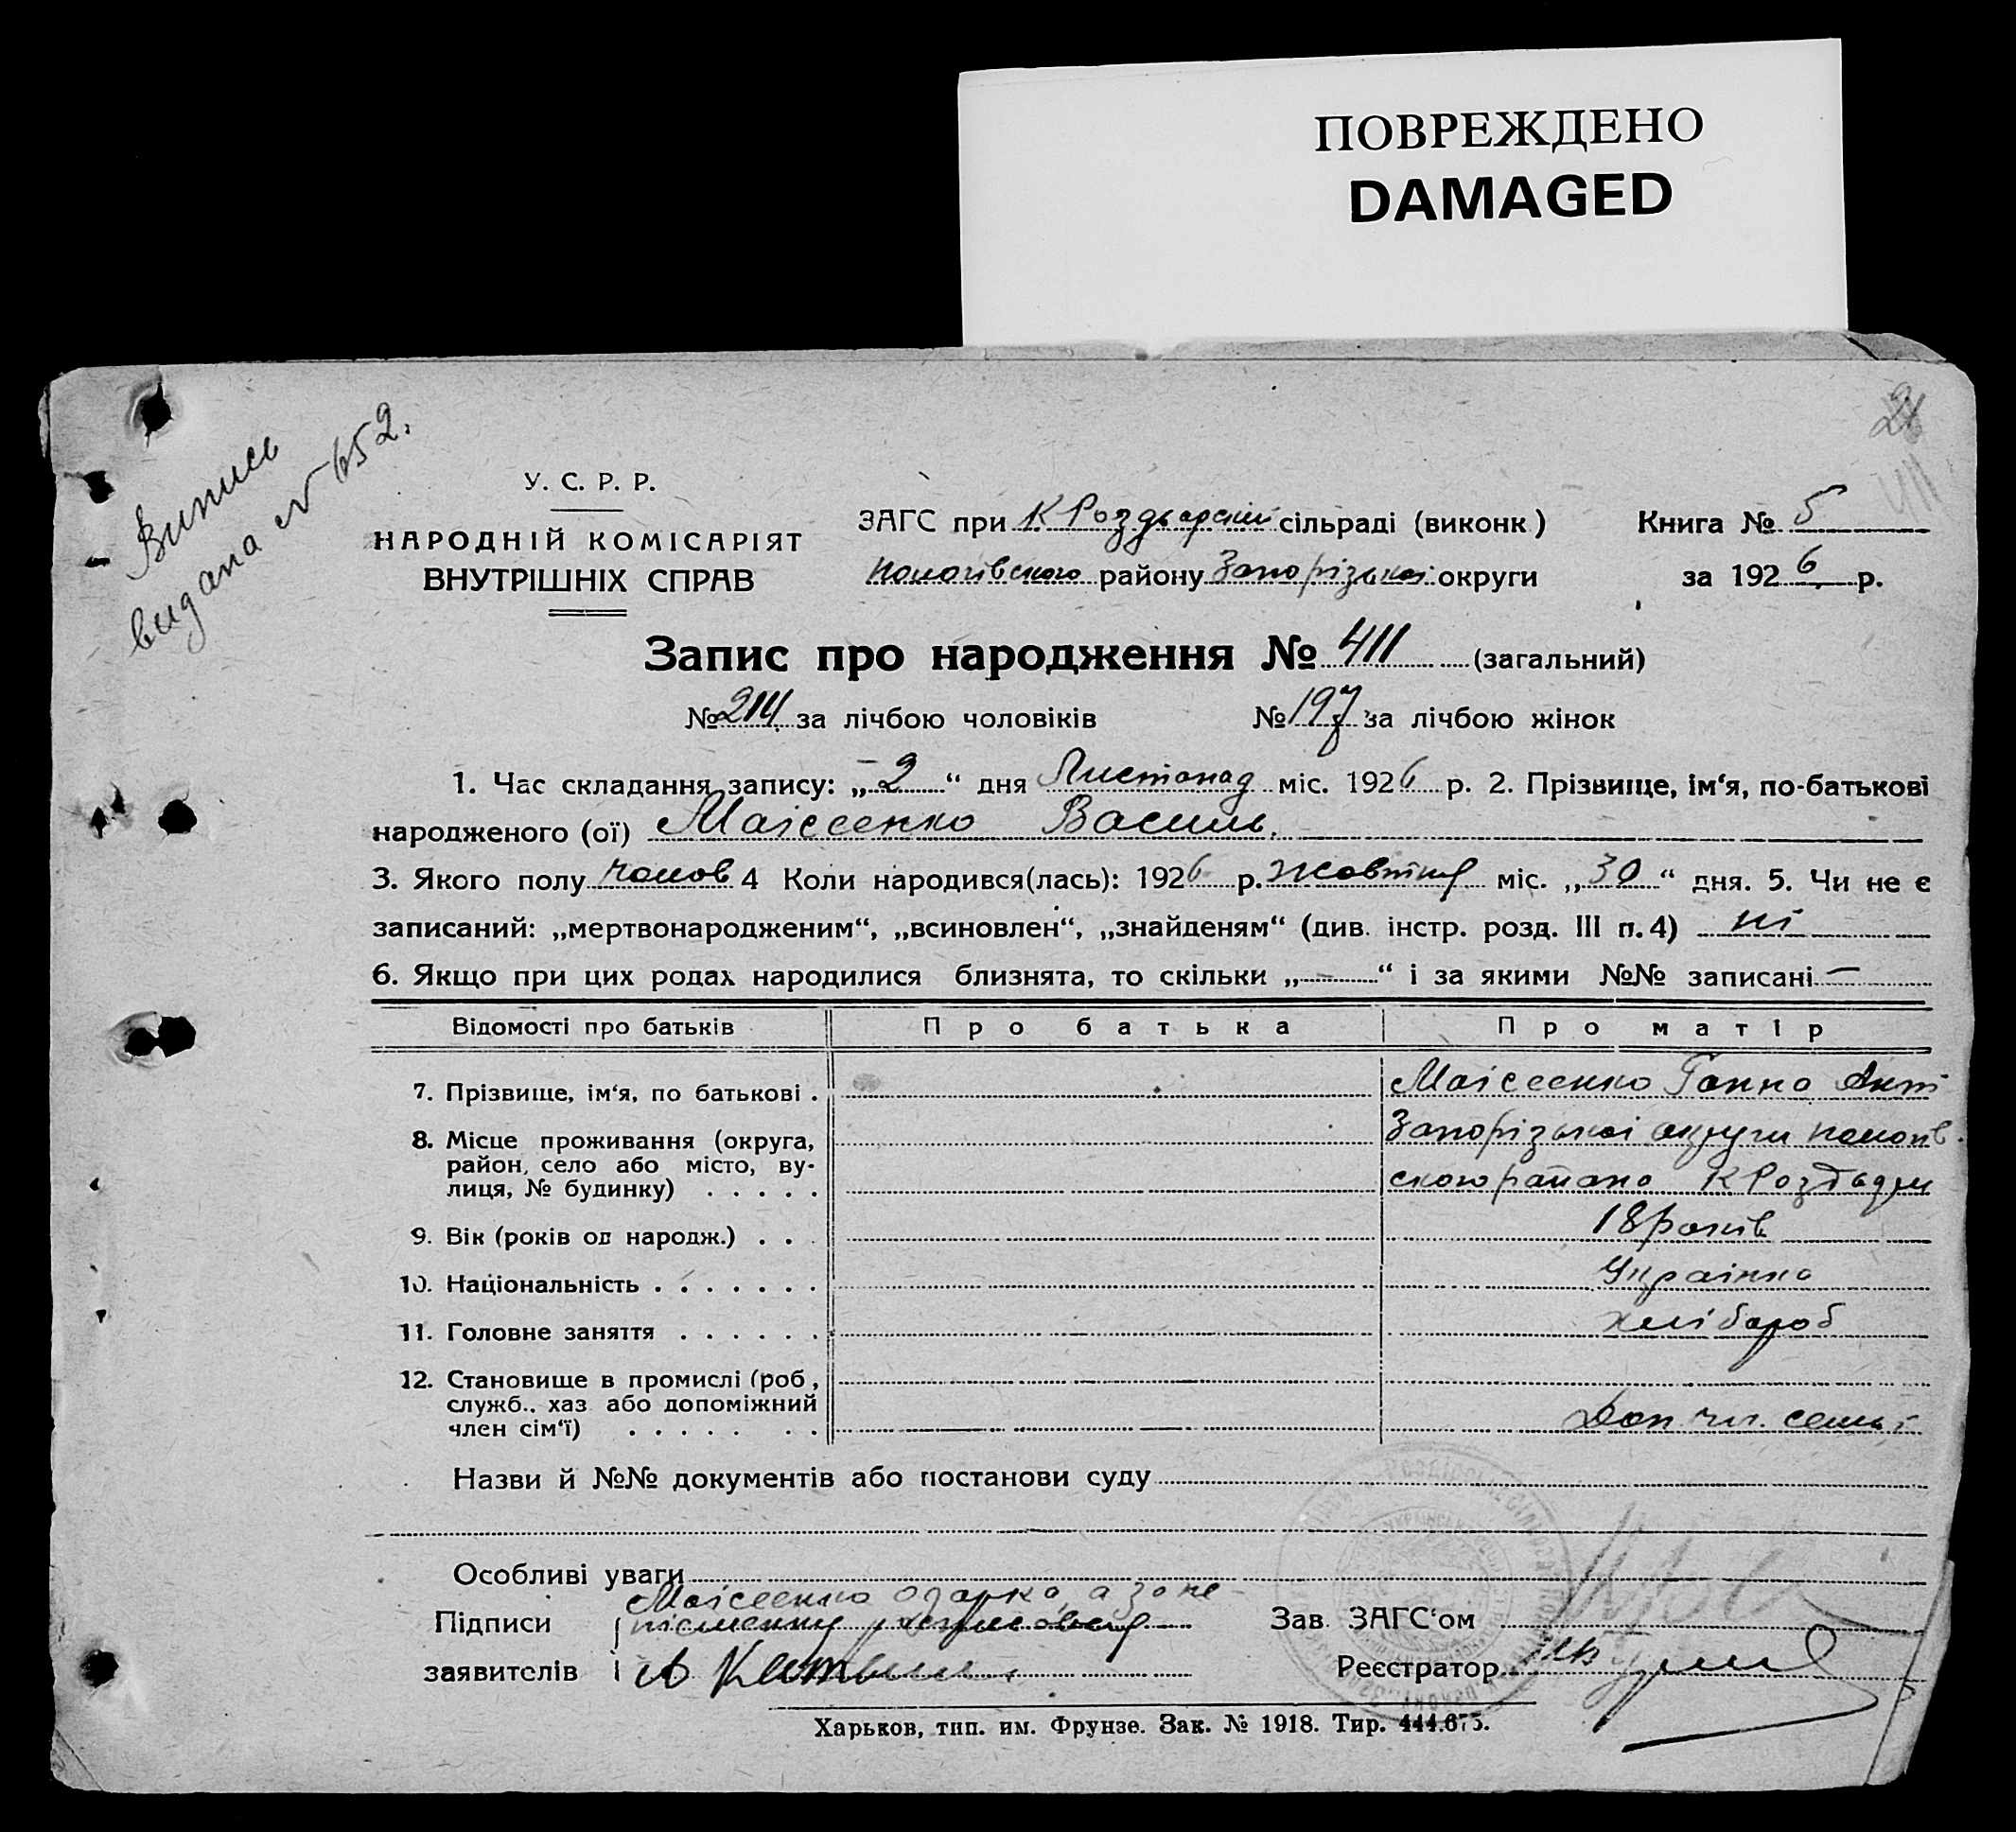 ПОВРЕЖДЕНО
DAMAGED
Випись
видана № 652.
У. С. Р. Р.
НАРОДНІЙ КОМІСАРІЯТ
ВНУТРІШНІХ СПРАВ
ЗАГС при К Роздорскій сільраді (виконк)
пологівского району Запорізькоі округи
Книга № 5
за 1926 р.
Запис про народження № 411 (загальний)
№ 214 за лічбою чоловіків № 197 за лічбою жінок
1. Час складання запису: „2“ дня Листопад міс. 1926 р. 2. Прізвище, ім‘я, по-батькові
народженого (ої) Маісеенко Василь.
3. Якого полу чолов 4 Коли народився(лась): 1926 р. жовтня міс. „30“ дня. 5. Чи не є
записаний: „мертвонародженим“, „всиновлен“, „знайденям“ (див. інстр. розд. III п. 4) ні
6. Якщо при цих родах народилися близнята, то скільки „—“ і за якими №№ записані —
Відомості про батьків Про батька Про матір
7. Прізвище, ім‘я, по батькові . Маісеенко Ганна Акт
8. Місце проживання (округа, Запорізькоі округи пологів
район, село або місто, ву-
лиця, № будинку) . . . . . ского району К Роздори
9. Вік (років од народж.) . . . 18 років
10. Національність . . . . . . . Украінка
11. Головне заняття . . . . . . хлібороб
12. Становище в промислі (роб,
служб., хаз або допоміжний
член сім‘ї) . . . . . . . Доп чл. семьі
Назви й №№ документів або постанови суду
Особливі уваги
Маісеенко Одарка, а за не-
Підписи пісьменну росписовся
заявителів
Зав. ЗАГС‘ом
Реєстратор
Харьков, тип. им. Фрунзе. Зак. № 1918. Тир. 444.675.